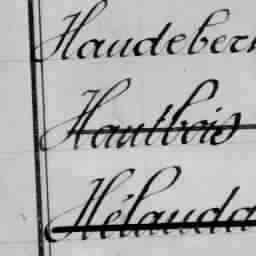 Haudeber
Hautbois
Hélauda